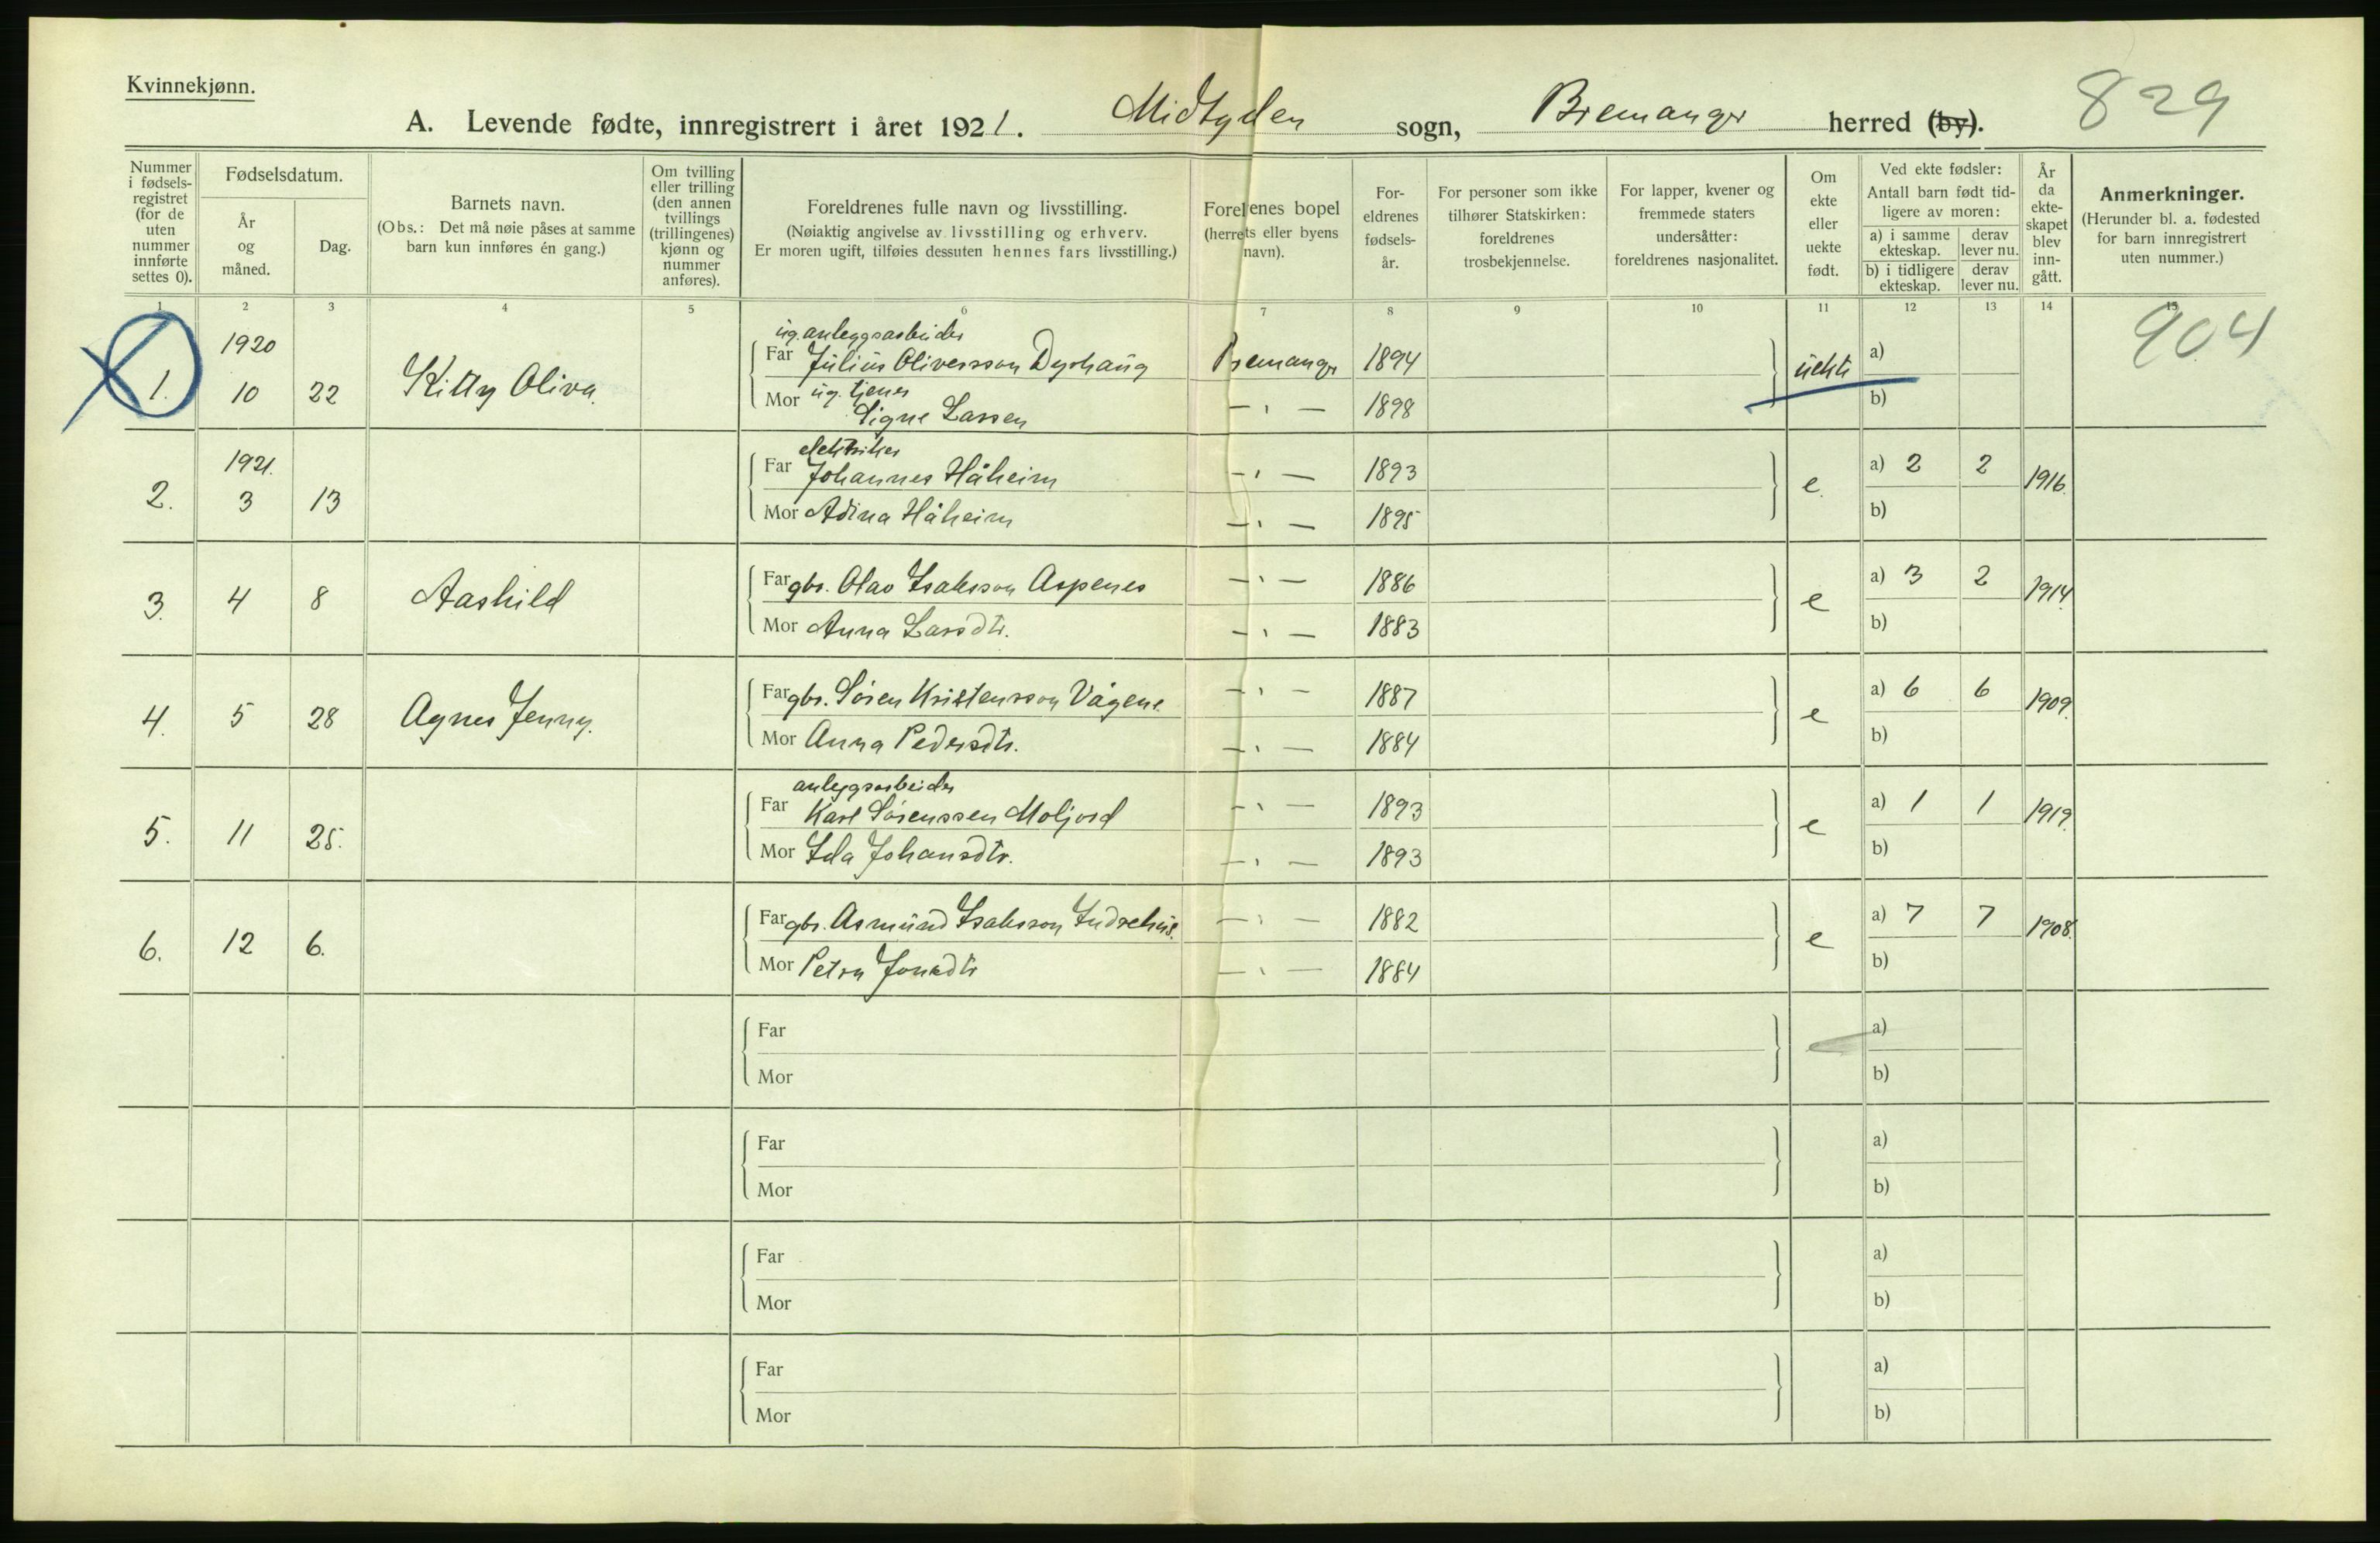 Kvinnekjønn.
A. Levende fødte, innregistrert i året 1921. Midtgulen sogn, Bremanger herred (by). 829
Nummer i fødselsregistret (for de uten nummer innførte settes 0).
Fødselsdatum.
År og måned.
Dag.
Barnets navn.
(Obs.: Det må nøie påses at samme barn kun innføres én gang.)
Om tvilling eller trilling (den annen tvillings (trillingenes) kjønn og nummer anføres).
Foreldrenes fulle navn og livsstilling.
(Nøiaktig angivelse av livsstilling og erhverv.
Er moren ugift, tilføies dessuten hennes fars livsstilling.)
Forelenes bopel (herrets eller byens navn).
Foreldrenes fødselsår.
For personer som ikke tilhører Statskirken: foreldrenes trosbekjennelse.
For lapper, kvener og fremmede staters undersåtter: foreldrenes nasjonalitet.
Om ekte eller uekte født.
Ved ekte fødsler:
Antall barn født tidligere av moren:
a) i samme ekteskap.
derav lever nu.
b) i tidligere ekteskap.
derav lever nu.
År da ekteskapet blev inngått.
Anmerkninger.
(Herunder bl. a. fødested for barn innregistrert uten nummer.)
1 2 3 4 5 6 7 8 9 10 11 12 13 14 15
904
1. 1920 10 22 Kitty Oliva.
ug. anleggsarbeider
Far Julius Oliversson Dyrhaug Bremanger 1894 uekte a)
Mor ug. tjener Signe Lassen — " — 1898 b)
2. 1921. 3 13
elektriker
Far Johannes Håheim — " — 1893 e. a) 2 2 1916.
Mor Adina Håheim — " — 1895 b)
3. 4 8 Aashild
Far gbr. Olav Isaksson Aspenes — " — 1886 e a) 3 2 1914.
Mor Anna Larsdtr. — " — 1883 b)
4. 5 28 Agnes Jenny.
Far gbr. Søren Kristensson Vågene — " — 1887 e a) 6 6 1909.
Mor Anna Pedersdtr. — " — 1884 b)
5. 11 25.
anleggsarbeider
Far Karl Sørenssen Moljord — " — 1893 e a) 1 1 1919.
Mor Ida Johansdtr. — " — 1893 b)
6. 12 6.
Far gbr. Asmund Isaksson Indrehus. — " — 1882 e a) 7 7 1908.
Mor Petra Jonsdtr — " — 1884 b)
Far a)
Mor b)
Far a)
Mor b)
Far a)
Mor b)
Far a)
Mor b)